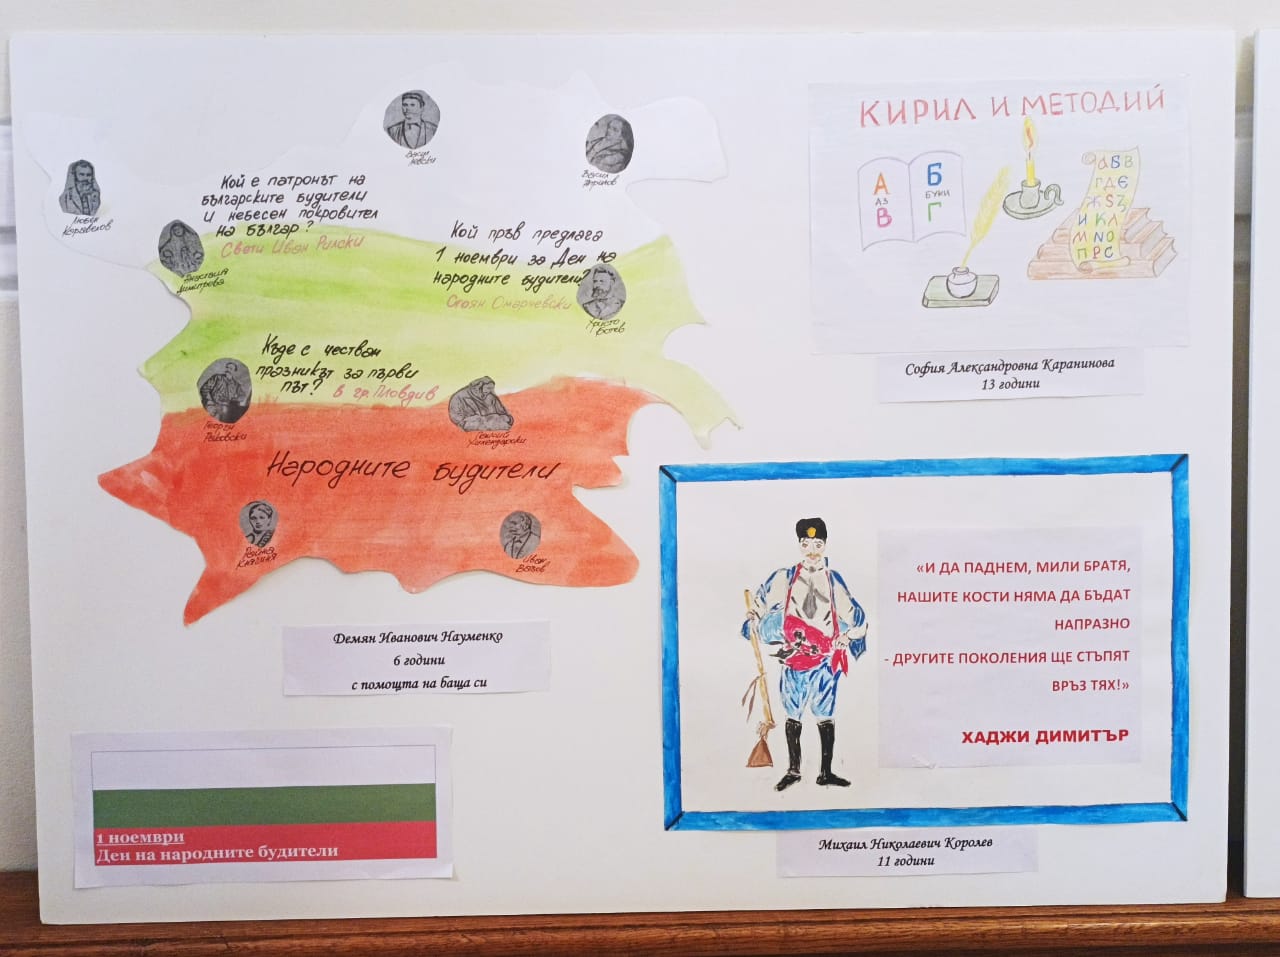 Васил
Левски
Васил
Априлов
Любен
Каравелов
Кой е патронът на
българските будители
и небесен покровител
на българ?
Свети Иван Рилски
Анастасия
Димитрова
Кой пръв предлага
1 ноември за Ден на
народните будители?
Стоян Омарчевски
Христо
Ботев
Къде е честван
празникът за първи
път? в гр. Пловдив
Георги
Раковски
Паисий
Хилендарски
Народните будители
Райна
Княгиня
Иван
Вазов
Демян Иванович Науменко
6 години
с помощта на баща си
1 ноември
Ден на народните будители
КИРИЛ И МЕТОДИЙ
А
АЗ
В
Б
БУКИ
Г
АБВ
ГДЕ
ЖЅЗ
ИКЛ
МNО
ПРС
София Александровна Каранинова
13 години
«И ДА ПАДНЕМ, МИЛИ БРАТЯ,
НАШИТЕ КОСТИ НЯМА ДА БЪДАТ
НАПРАЗНО
- ДРУГИТЕ ПОКОЛЕНИЯ ЩЕ СТЪПЯТ
ВРЪЗ ТЯХ!»
ХАДЖИ ДИМИТЪР
Михаил Николаевич Королев
11 години